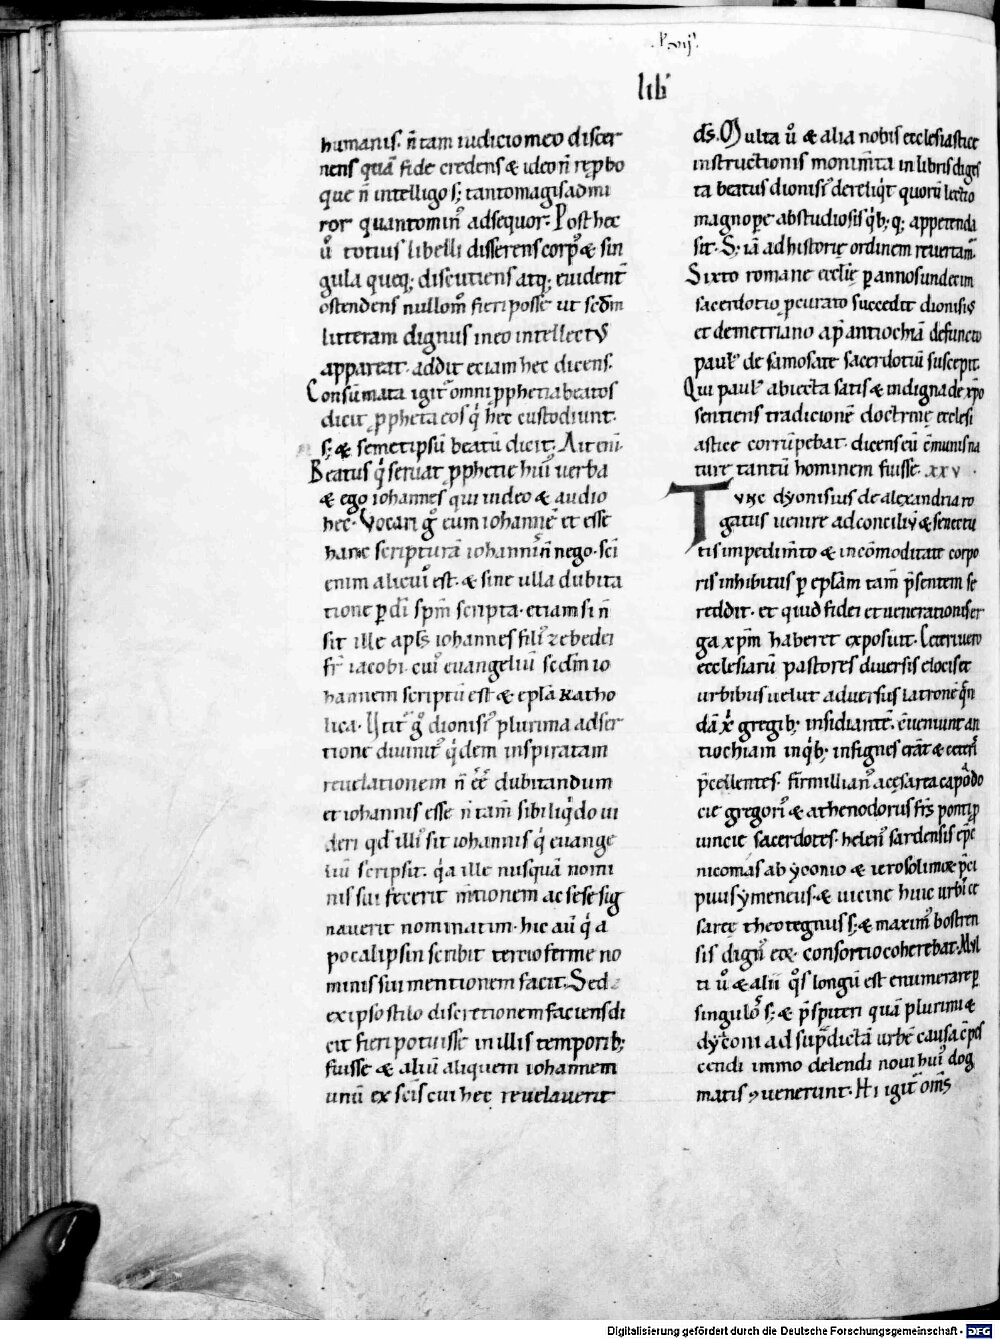 lib̅
humanis. n̅ tam iudicio meo discer
nens quā fide credens & ideo n̅ rep̱bo
que n̅ intelligo s; tanto magis admi
ror quanto min᷒ adsequor. Post hec
ů totius libelli disserens corp᷒ & sin
gula queq; discutiens atq; euident̅
ostendens nullom̅ fieri posse ut sc̅dm̅
litteram dignus in eo intellectus
appareat. addit etiam hec dicens.
Consūmata igit̅ omni p̱phetia beatos
dicit p̱pheta eos qͥ hec custodiunt.
s; & semetipsū beatū dicit. Ait eni.
Beatus qͥ seruat p̱phetie hui᷒ uerba
& ego iohannes qui uideo & audio
hec. Vocari g͛ eum iohannē et esse
hanc scripturā iohannis n̅ nego. sc̅i
enim alicui᷒ est. & sine ulla dubita
tione ꝑ dī sp̅m scripta. etiam si n̅
sit ille apl̅s iohannes fili᷒ zebedei
fr̅ iacobi. cui᷒ euangeliū sc̅dm̅ io
hannem scriptū est & epl̅a katho
lica. Utit̅ g͛ dionisi᷒ plurima adser
tione diuinit᷒ qͥdem inspiratam
reuelationem n̅ e̅e̅ dubitandum
et iohannis esse n̅ tam̅ sibi liqͥdo ui
deri qd̅ illi᷒ sit iohannis qͥ euange
liū scripsit. q͛a ille nusquā nomi
nis sui fecerit m̅tionem ac se se sig
nauerit nominatim. hic aū qͥ a
pocalipsin scribit tercio ferme no
minis sui mentionem facit. Sed
ex ipso stilo discretionem faciens di
cit fieri potuisse in illis temporib;
fuisse & aliū aliquem iohannem
unū ex sc̅is cui hec reuelauerit
ds̅. Multa ů & alia nobis ecclesiastice
instructionis monim̅ta in libris diges
ta beatus dionisi᷒ dereliqͥt quorū lectio
magnopere ab studiosis qͥb; q; appetenda
sit. S; iā ad historię ordinem reuertam᷒.
Sixto romane eccl̅ię ꝑ annos undecim
sacerdotio ꝓcurato succedit dionisi᷒
et demetriano ap̅ antiochiā defuncto
paul᷒ de samosate sacerdotiū suscepit.
Qui paul᷒ abiecta satis & indigna de xp̅o
sentiens tradicionē doctrinę ecclesi
astice corrūpebat. dicens eū cōmunis na
ture tantū hominem fuisse. xxv.
Tunc dyonisius de alexandria ro
gatus uenire ad conciliū & senectu
tis impedim̅to & incōmoditate corpo
ris inhibitus ꝑ epl̅am tam̅ p̅sentem se
reddit. et quid fidei et uenerationis er
ga xp̅m haberet exposuit. Ceteri uero
ecclesiarū pastores diuersis e locis et
urbibus uelut aduersus latronē qͥn
dā xp̅i gregib; insidiantē. cōueniunt an
tiochiam in qͥb; insignes erāt & ceteri᷒
p̅cellentes. firmillian᷒ a cęsarea capado
cie gregori᷒ & athenodorus fr̅s ponti ꝓ
uincie sacerdotes. helen᷒ sardensis ep̅c
nicomas ab yconio & ierosolimoꝝ p̅ci
puus ymeneus. & uicine huic urbi ce
saree theotegnus s; & maxim᷒ bostren
sis dign᷒ eoꝝ consortio coherebat. Mul
ti ů & alii qͥs longū est enumerare ꝑ
singulos s; & p̅sbiteri quā plurimi &
dyaconi ad sup̅dictā urbē causa cōpes
cendi immo delendi noui hui᷒ dog
matis ꝯuenerunt. Hi igit̅ om̅s
Digitalisierung gefördert durch die Deutsche Forschungsgemeinschaft - DFG